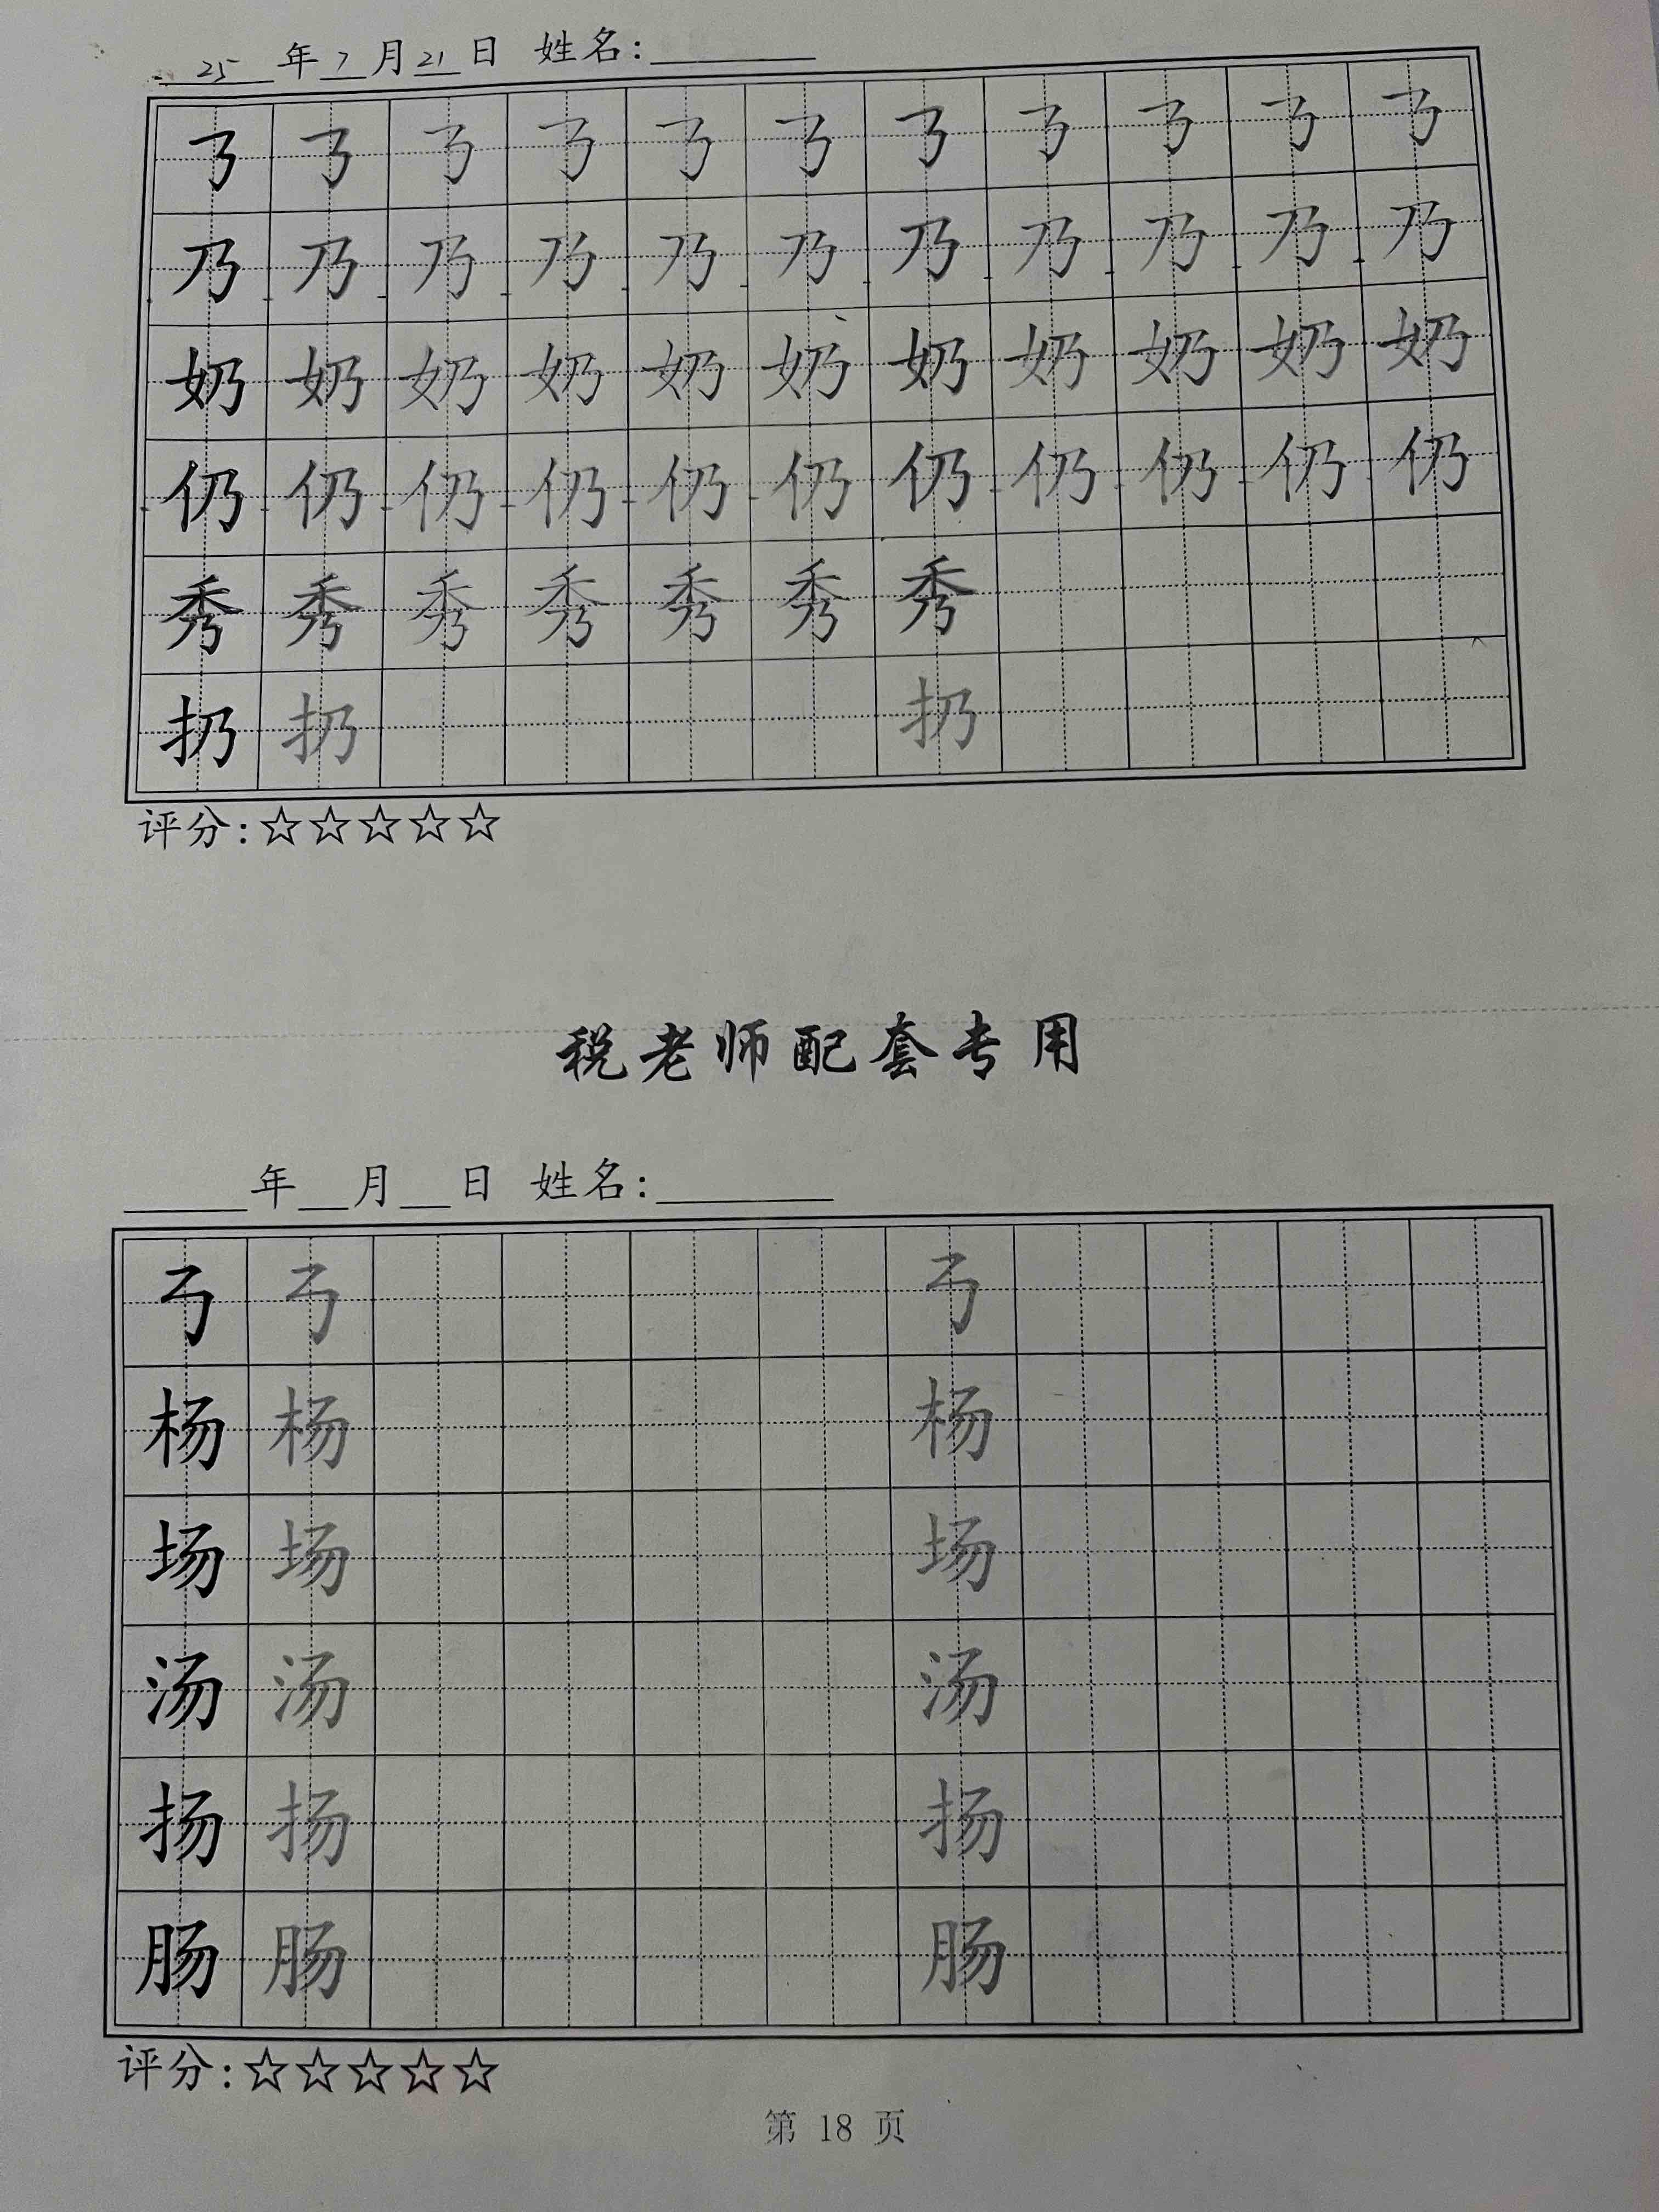 25年7月21日 姓名:
㇋ ㇋ ㇋ ㇋ ㇋ ㇋ ㇋ ㇋ ㇋ ㇋ ㇋
乃 乃 乃 乃 乃 乃 乃 乃 乃 乃 乃
奶 奶 奶 奶 奶 奶 奶 奶 奶 奶 奶
仍 仍 仍 仍 仍 仍 仍 仍 仍 仍 仍
秀 秀 秀 秀 秀 秀 秀
扔 扔 扔
评分:☆☆☆☆☆
税老师配套专用
年 月 日 姓名:
㇡ ㇡ ㇡
杨 杨 杨
场 场 场
汤 汤 汤
扬 扬 扬
肠 肠 肠
评分:☆☆☆☆☆
第 18 页